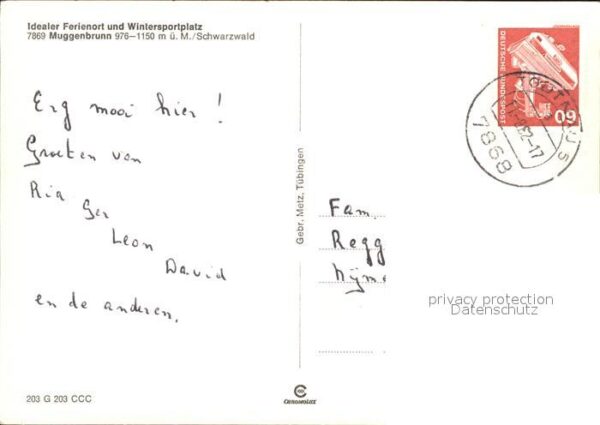 Idealer Ferienort und Wintersportplatz
7869 Muggenbrunn 976–1150 m ü. M./Schwarzwald
Erg mooi hier !
Groeten van
Ria Ger
Leon
David
en de anderen.
203 G 203 CCC
Gebr. Metz, Tübingen
CHROMOLUX
DEUTSCHE BUNDESPOST
60
7868
Fam.
Regg
Nijme
privacy protection
Datenschutz